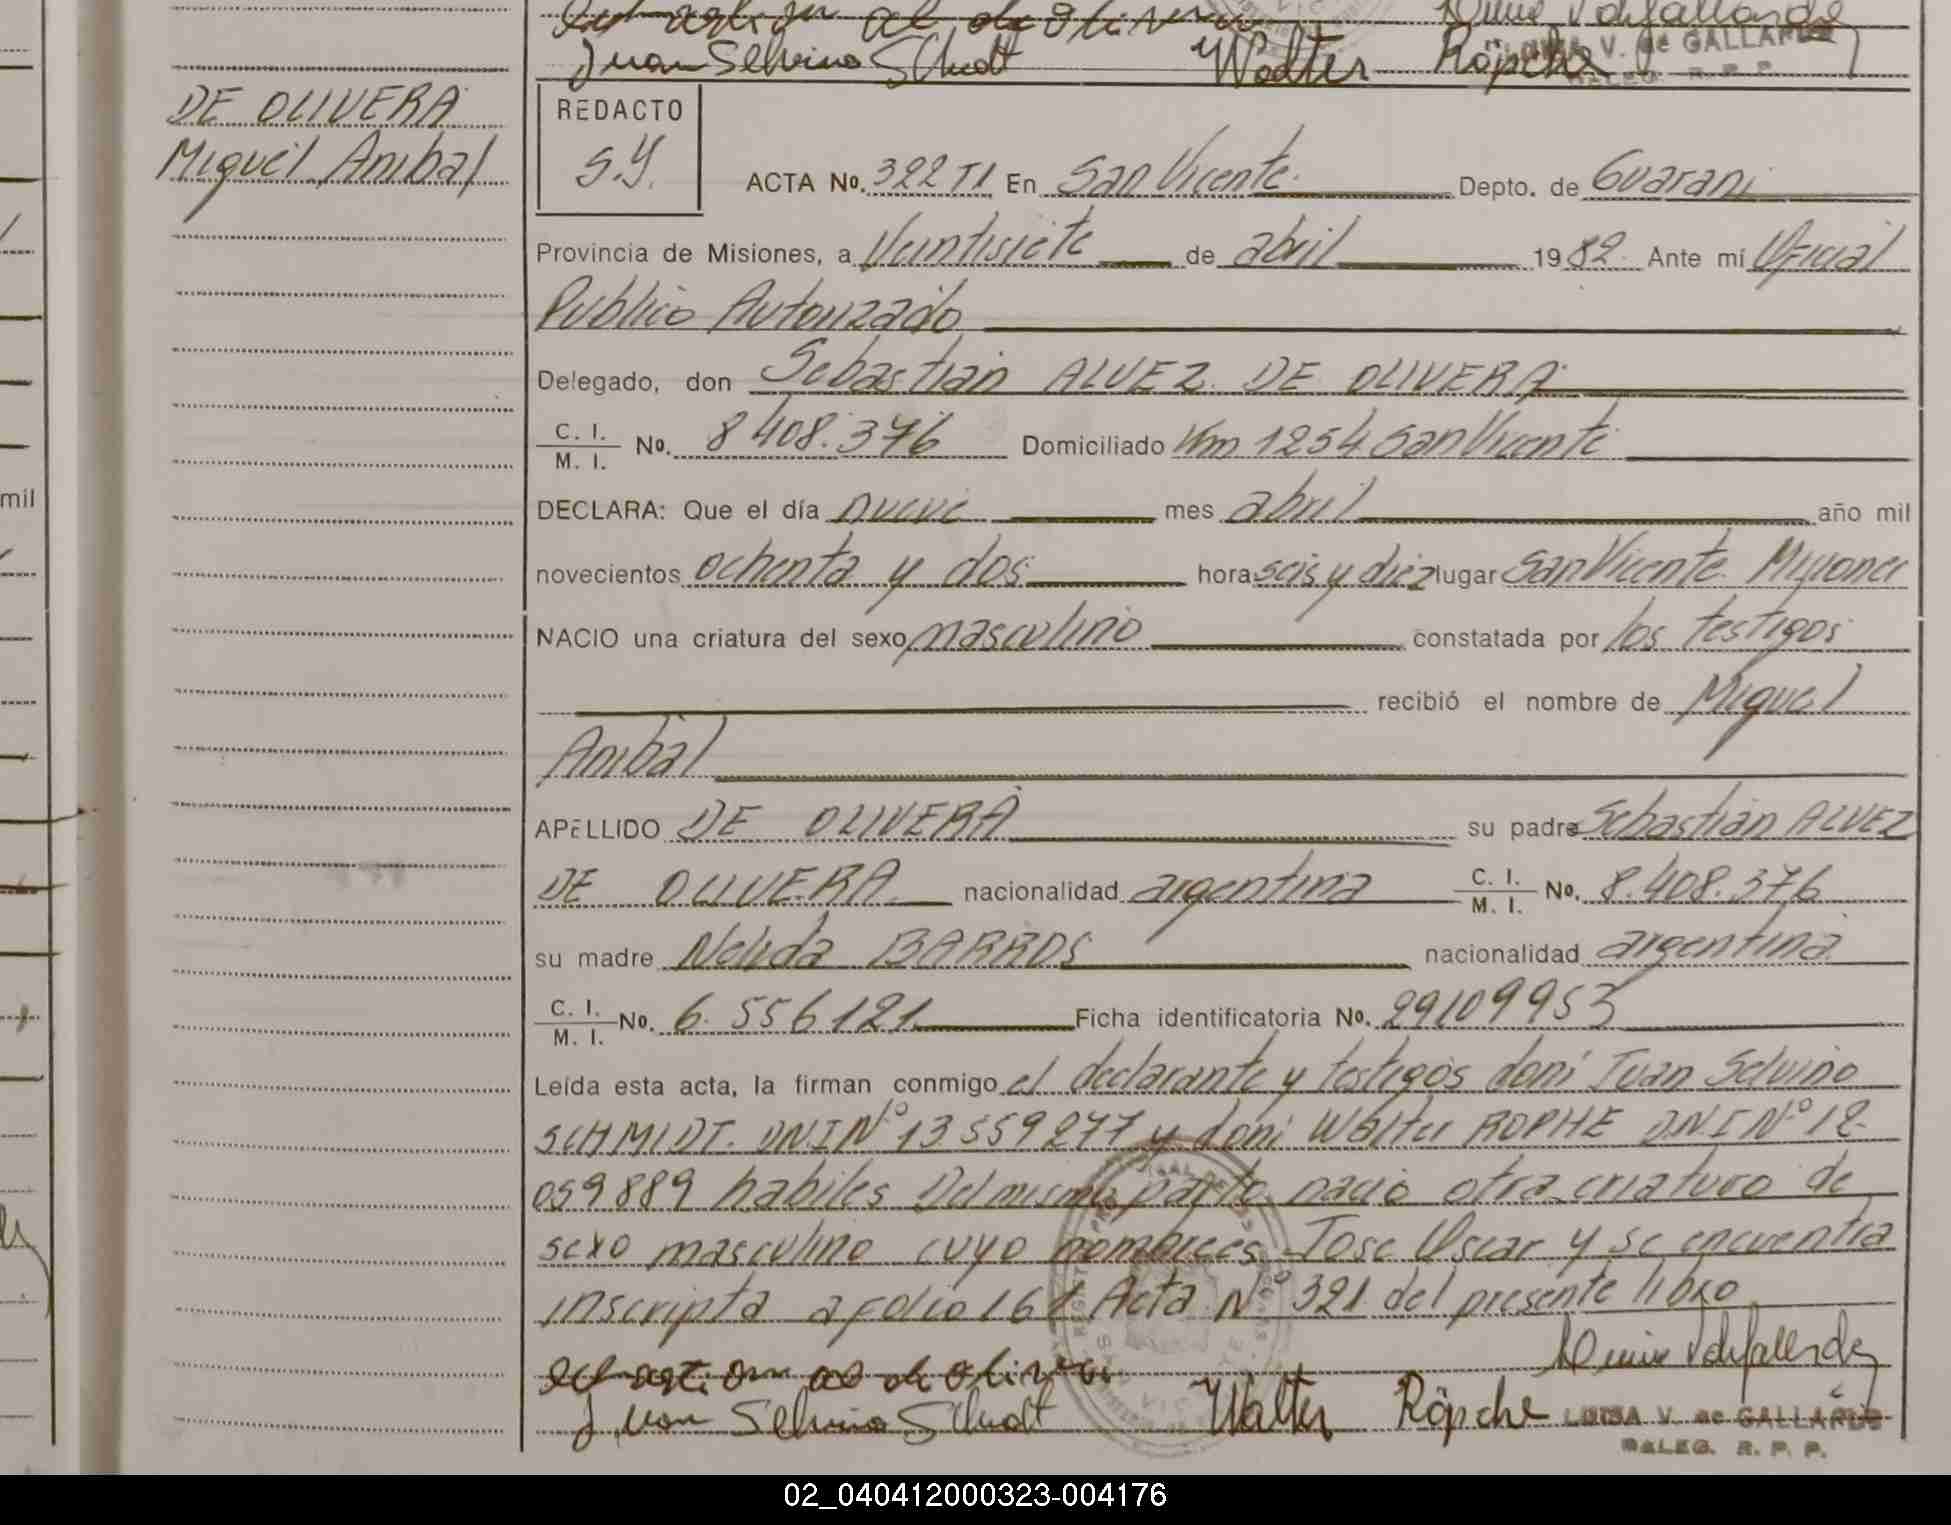 Juan Selvino Schudt Walter Röpche LUISA V. de GALLARDO
DE OLIVERA
Miguel Anibal
REDACTO
S.Y.
ACTA No. 322 TI En San Vicente Depto. de Guarani
Provincia de Misiones, a Veintisiete de abril 1982. Ante mí Oficial
Publico Autorizado
Delegado, don Sebastian ALVEZ DE OLIVERA
C. I.
M. I. No. 8408.376 Domiciliado Km 1254 San Vicente
DECLARA: Que el día nueve mes abril año mil
novecientos ochenta y dos hora seis y diez lugar San Vicente Misiones
NACIO una criatura del sexo masculino constatada por los testigos
recibió el nombre de Miguel
Anibal
APELLIDO DE OLIVERA su padre Sebastián ALVEZ
DE OLIVERA nacionalidad argentina C. I. M. I. No. 8.408.376
su madre Nelida BARROS nacionalidad argentina
C. I.
M. I. No. 6.556121 Ficha identificatoria No. 29109953
Leída esta acta, la firman conmigo el declarante y testigos don: Juan Selvino
SCHMIDT. DNI N° 13559277 y don: Walter ROPHE D.N.I N° 12-
059889 habiles Del mismo parto nació otra criatura de
sexo masculino cuyo nombrees Jose Oscar y se encuentra
inscripta a folio 161 Acta N° 321 del presente libro
Juan Selvino Schudt Walter Röpche LUISA V. de GALLARDO
DALEG. R. P. P.
mil
02_040412000323-004176